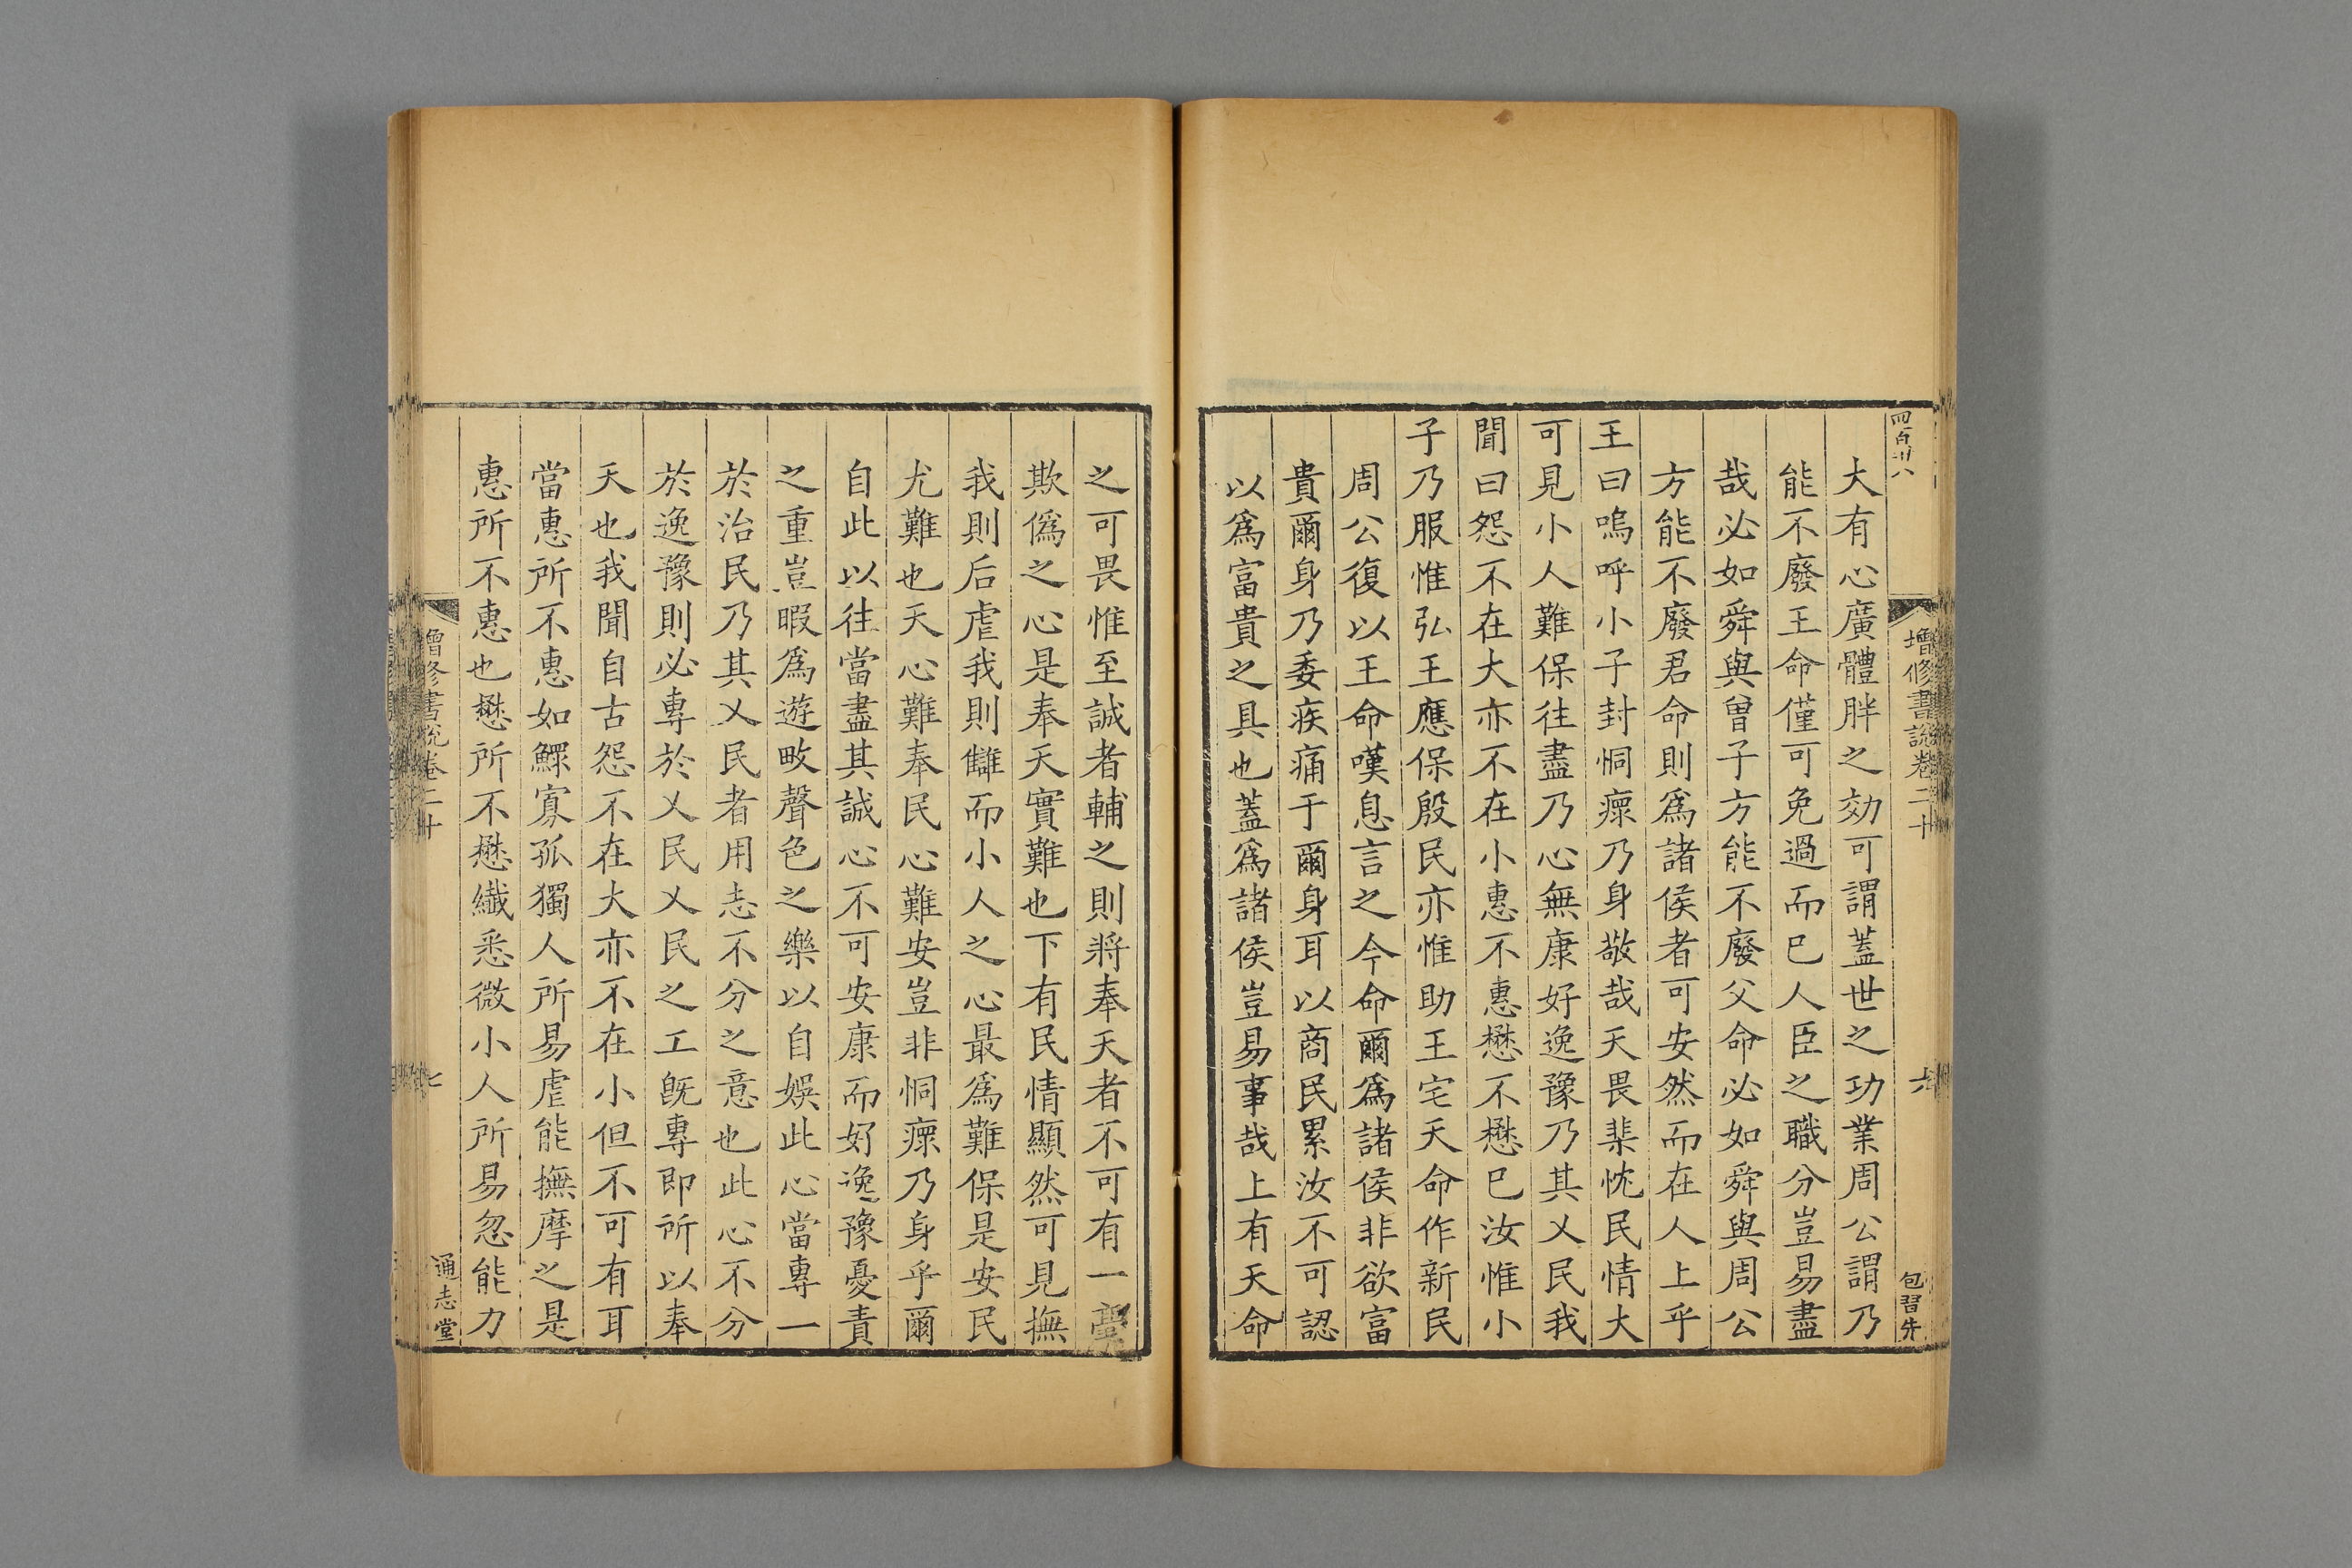 四百卅八
增修書說卷二十
六
包習先
大有心廣體胖之効可謂蓋世之功業周公謂乃
能不廢王命僅可免過而已人臣之職分豈易盡
哉必如舜與曾子方能不廢父命必如舜與周公
方能不廢君命則爲諸侯者可安然而在人上乎
王曰嗚呼小子封恫瘝乃身敬哉天畏棐忱民情大
可見小人難保往盡乃心無康好逸豫乃其乂民我
聞曰怨不在大亦不在小惠不惠懋不懋巳汝惟小
子乃服惟弘王應保殷民亦惟助王宅天命作新民
周公復以王命嘆息言之今命爾爲諸侯非欲富
貴爾身乃委疾痛于爾身耳以商民累汝不可認
以爲富貴之具也蓋爲諸侯豈易事哉上有天命
之可畏惟至誠者輔之則將奉天者不可有一毫
欺僞之心是奉天實難也下有民情顯然可見撫
我則后虐我則讎而小人之心最爲難保是安民
尤難也天心難奉民心難安豈非恫瘝乃身乎爾
自此以往當盡其誠心不可安康而好逸豫憂責
之重豈暇爲遊畋聲色之樂以自娛此心當專一
於治民乃其乂民者用志不分之意也此心不分
於逸豫則必專於乂民乂民之工旣專即所以奉
天也我聞自古怨不在大亦不在小但不可有耳
當惠所不惠如鰥寡孤獨人所易虐能撫摩之是
惠所不惠也懋所不懋纖悉微小人所易忽能力
增修書說卷二十
七
通志堂